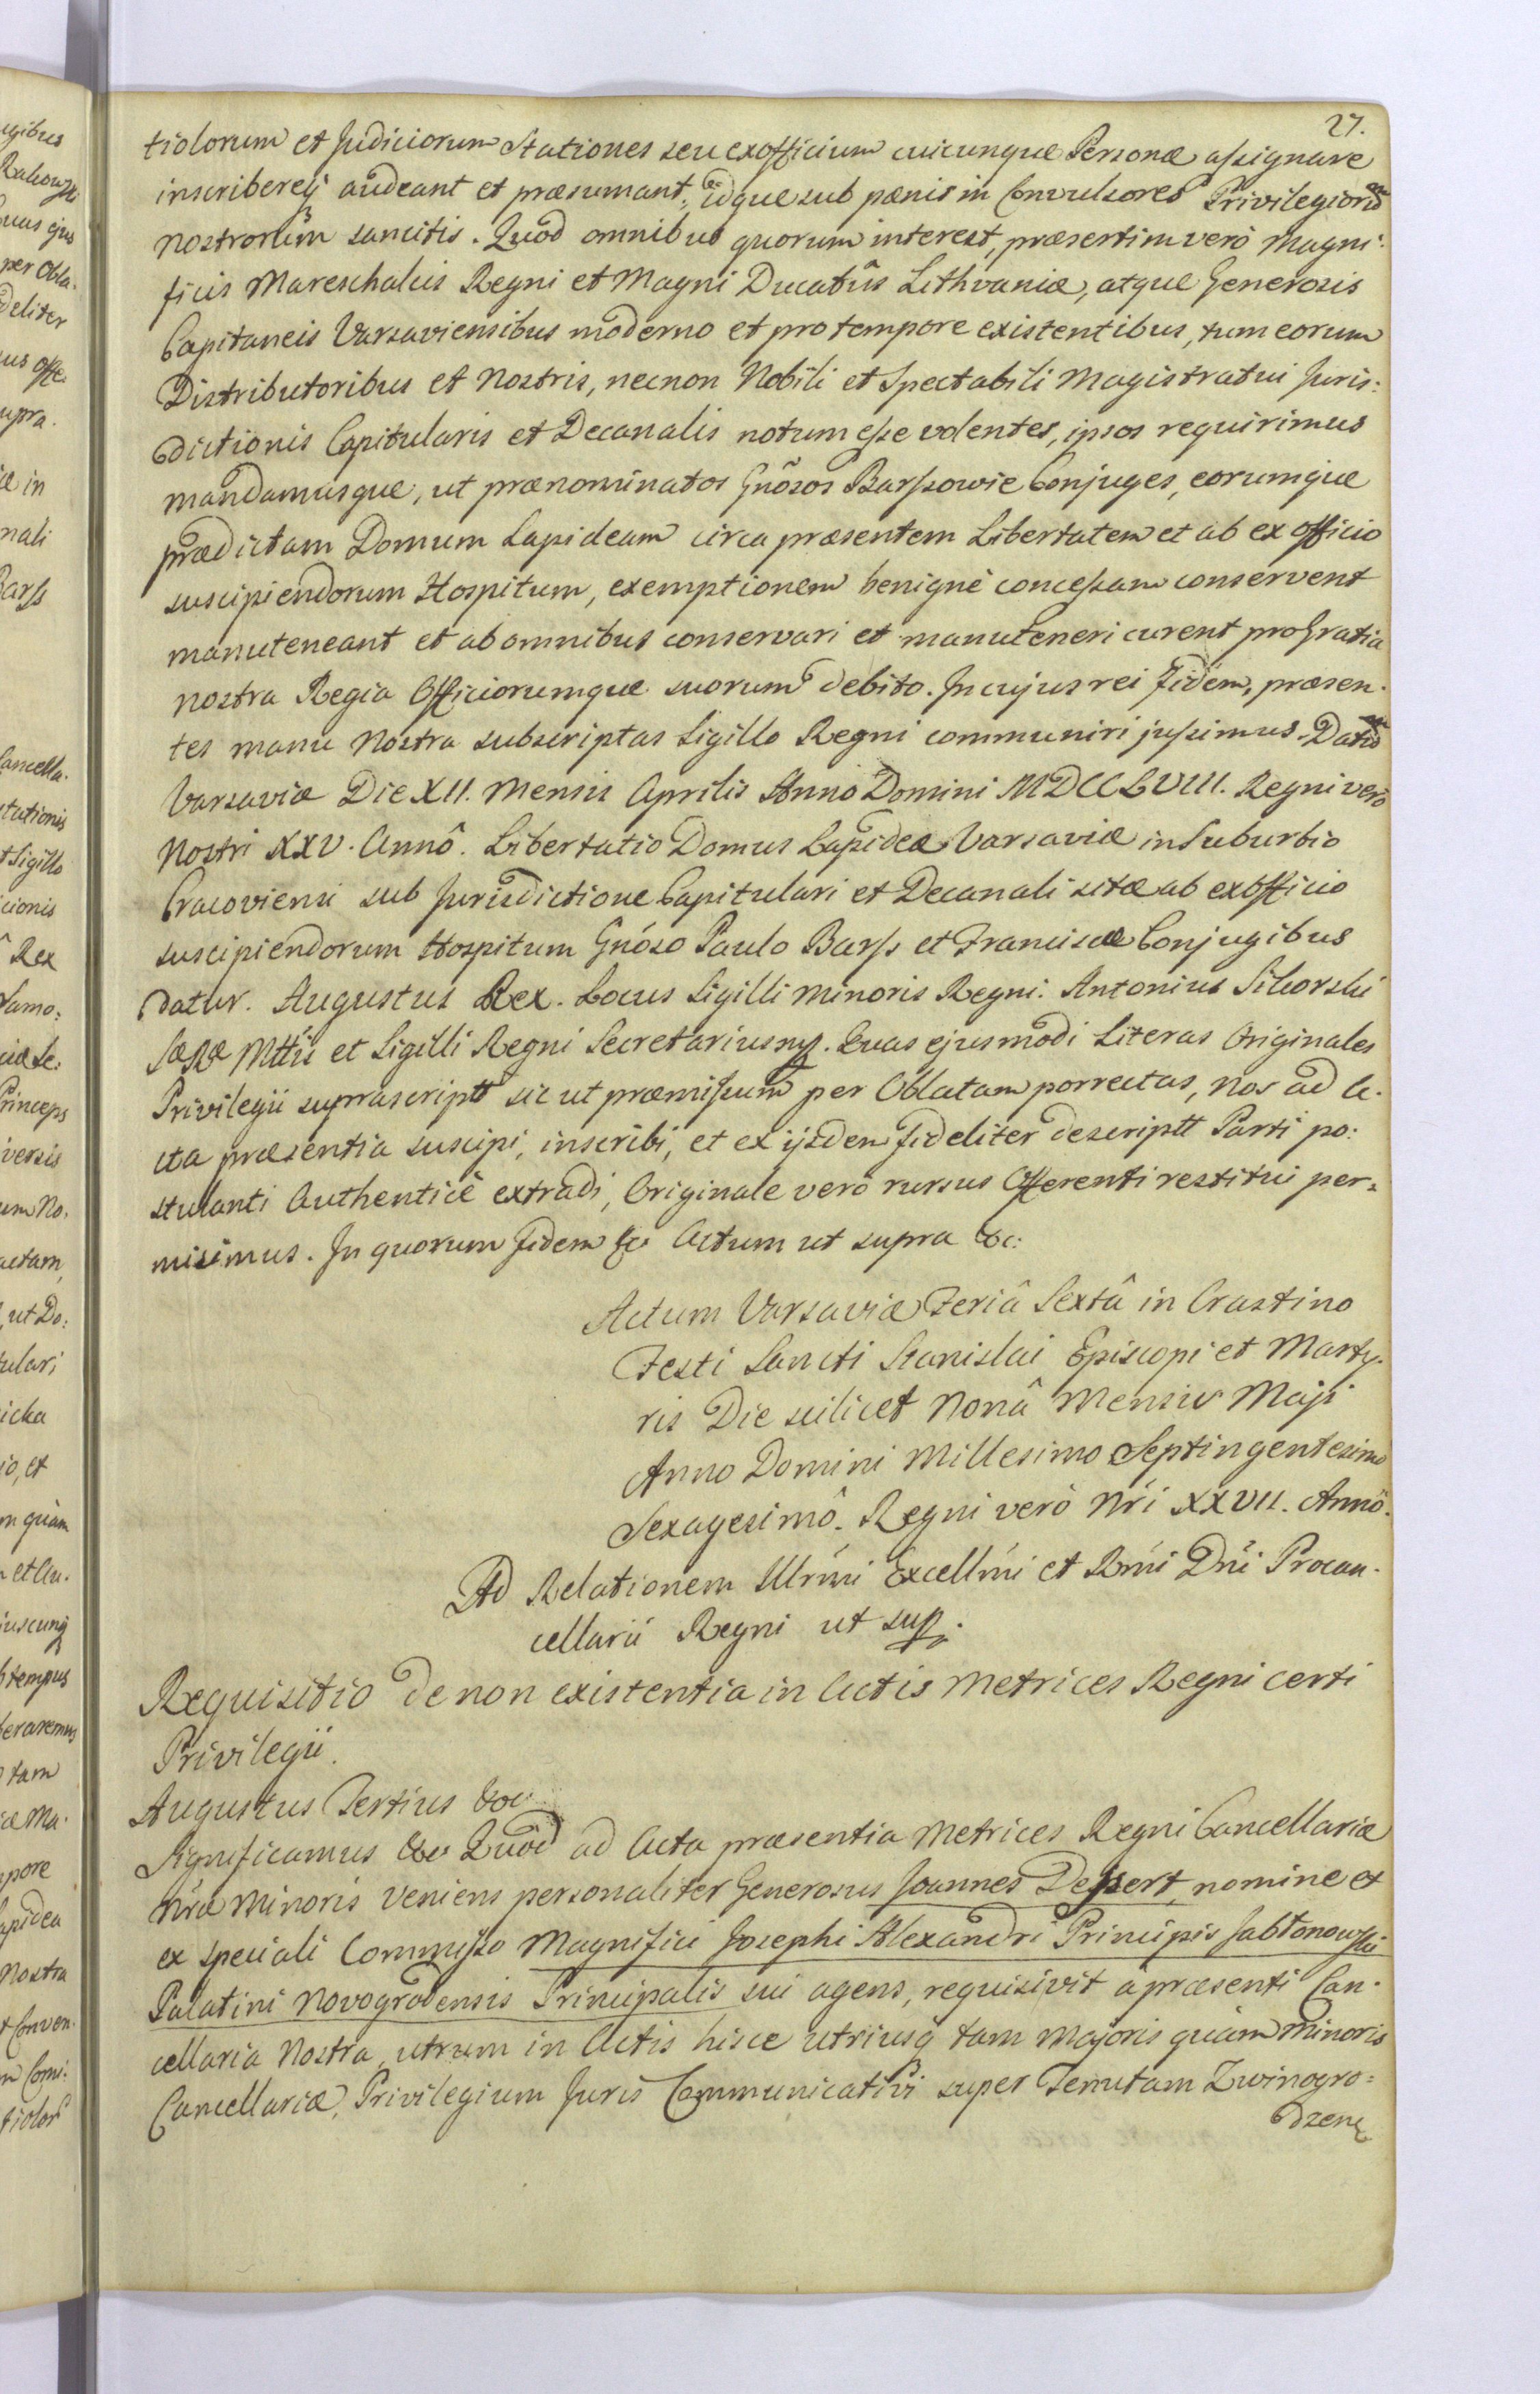 27.
tiolorum et Judiciorum Stationes seu exofficium cuicunque Personæ assignare
inscribereq audeant et præsumant, idque sub pænis in Convulsores Privilegiorũ
nostrorum sancitis. Quod omnibus quorum interest, præsertim verò Magni-
ficis Mareschalcis Regni et Magni Ducatûs Lithvaniæ, atque Generosis
Capitaneis Varsaviensibus moderno et pro tempore existentibus, tum eorum
Distributoribus et Nostris, necnon Nobili et Spectabili Magistratui Juris:
dictionis Capitularis et Decanalis notum esse volentes, ipsos requirimus
mandamusque, ut prænominatos Gnõsos Barszowie Conjuges, eorumque
prædictam Domum Lapideam circa præsentem Libertatem et ab ex officio
suscipiendorum Hospitum, exemptionem benignè concessam conservent
manuteneant et ab omnibus conservari et manuteneri curent pro Gratia
nostra Regia Officiorumque suorum debito. In cujus rei Fidem, præsen-
tes manu Nostra subscriptas Sigillo Regni communiri jussimus. Datũ
Varsaviæ Die XII. Mensis Aprilis Anno Domini MDCCLVIII. Regni verò
Nostri XXV. Annô. Libertatio Domus Lapideæ Varsaviæ in Suburbio
Cracoviensi sub Jurisdictione Capitulari et Decanali sitæ ab exofficio
suscipiendorum Hospitum Gnóso Paulo Barss et Franciscæ Conjugibus
datur. Augustus Rex. Locus Sigilli Minoris Regni. Antonius Sikorski
SæRæ Mttis et Sigilli Regni Secretarius mp. Quas ejusmodi Literas Originales
Privilegii suprascriptt sic ut præmissum per Oblatam porrectas, nos ad A-
cta præsentia suscipi, inscribi, et ex ijsdem fideliter descriptt Parti po:
stulanti Authenticè extradi, Originale verò rursus Offerenti restitui per=
misimus. In quorum Fidem &c Actum ut supra &c:
Actum Varsaviæ Feriâ Sextâ in Crastino
Festi Sancti Stanislai Episcopi et Marty-
ris Die scilicet Nonâ Mensis Maji
Anno Domini Millesimo Septingentesimo
Sexagesimô. Regni verò Nri XXVII. Annô.
Ad Relationem Illrmi Excellmi et Rmi Dni Procan-
cellarii Regni ut sup.
Requisitio de non existentia in Actis Metrices Regni certi
Privilegii.
Augustus Tertius &c
Significamus &c Quod ad Acta præsentia Metrices Regni Cancellariæ
Nræ Minoris veniens personaliter Generosus Joannes Dessert, nomine et
ex speciali Commisso Magnifici Josephi Alexandri Principis Jabłonowski
Palatini Novogrodensis Principalis sui agens, requisivit a præsenti Can-
cellaria Nostra, utrum in Actis hisce utriusq tam Majoris quàm Minoris
Cancellariæ, Privilegium Juris Communicativi super Tenutam Zwinogro=
dzen